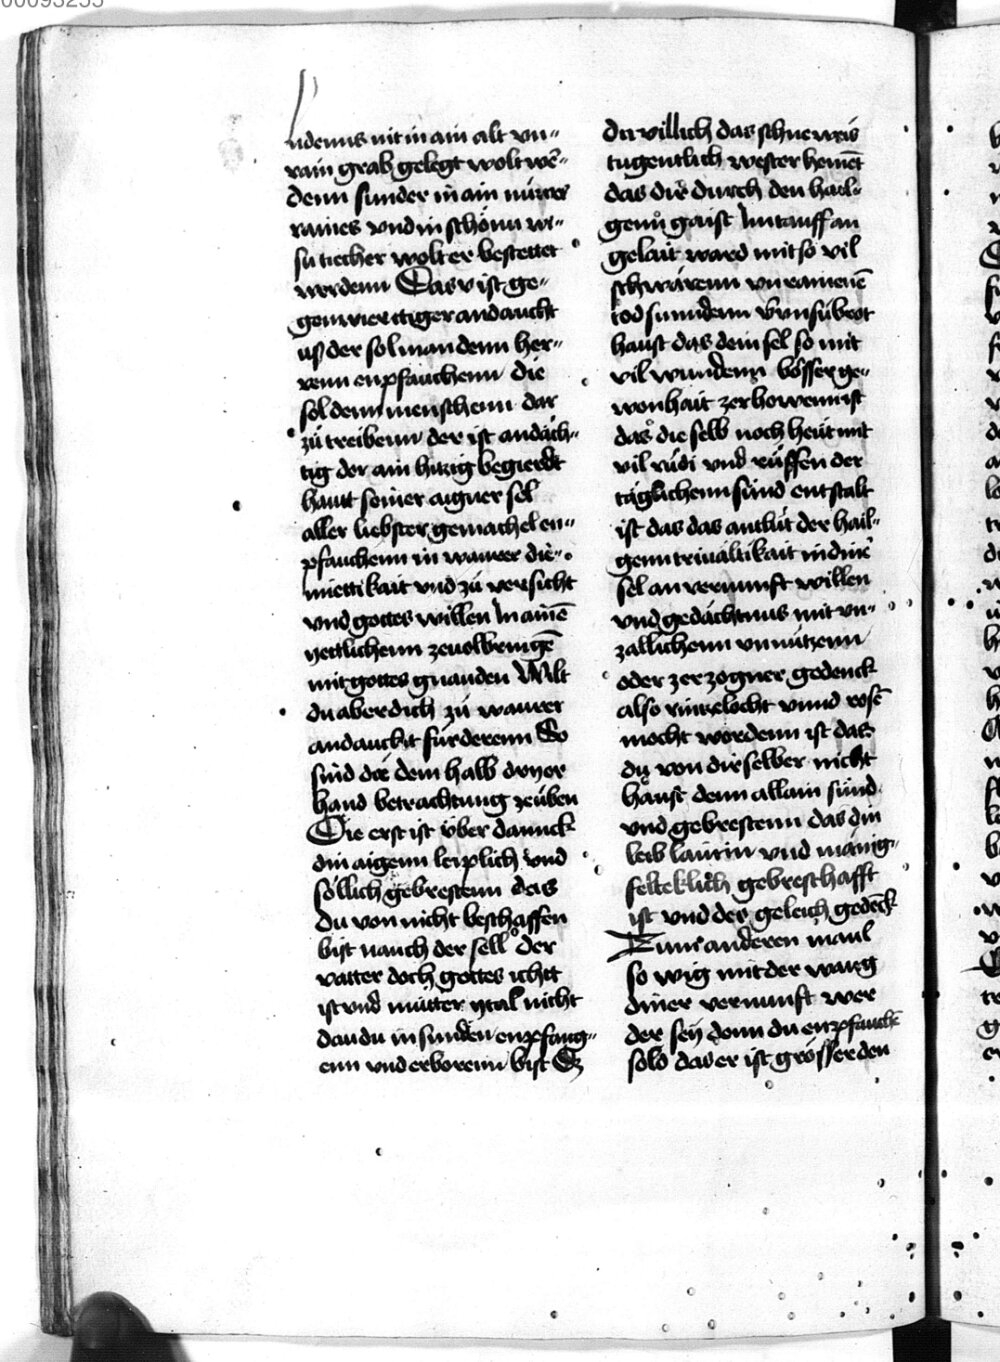 00093255
ndenns nit in ain alt vn-
rain grab gelegt wolt we-
denn sunder in ain nuwes
raines vnd in schönn wi-
sü tiecher wolt er bestettet
werdenn Das v ist ge-
genwierttiger andaucht
uß der sol man denn her-
renn enpfauchenn die
sol denn menschenn dar
zü treibenn der ist andäch-
tig der ain hitzig begierdt
hautt seiner aigner sel
aller liebster gemachel en-
pfauchenn in waurer die-
miettikait vnd zü versicht
vnd gottes willen In ainē
yettlichenn zeuolbringē
mit gottes gnauden Wilt
du aber dich zü waurer
andaucht fürderenn So
sind dir dem halb dryer
hand betrachtung zeüben
Die erst ist über dannck
din aigenn leiplich vnd
söllich gebrestenn das
du von nicht beschaffen
bist nauch der sell der
vatter doch gottes ichtt
ist vnd mütter ytal nicht
dan du in sunden enpfang-
enn vnd erborenn bist Es
du villich das schneweis
tugentlich wester hemet
das dir durch den hail-
genn gaist Im tauff an
gelait ward mit so vil
schwärenn vnrainenē
tod sunndenn vernsübrot
haust das dein sel so mit
vil wundenn bösser ge-
wonhait zerhowenn ist
das die selb noch heüt mit
vil rüdi vnd rüffen der
täglichenn sünd entstalt
ist das das antlüt der hail-
genn triuältikait in diner
sel an vernunfft willen
vnd gedächtnus mit vn-
zallichenn vnnützenn
oder zerzogner gedenck
also rinkelocht vnnd rosē
mocht wordenn ist das
du von dir selber nicht
haust denn allain sünd
vnd gebrestenn das din
leib laürin vnd mänig-
felteklich gebresthafft
ist vnd des geleich gedēck
Zum anderen maul
so wig mit der waug
diner vernunft wer
der sey denn du enpfauchē
solo das er ist grösser den